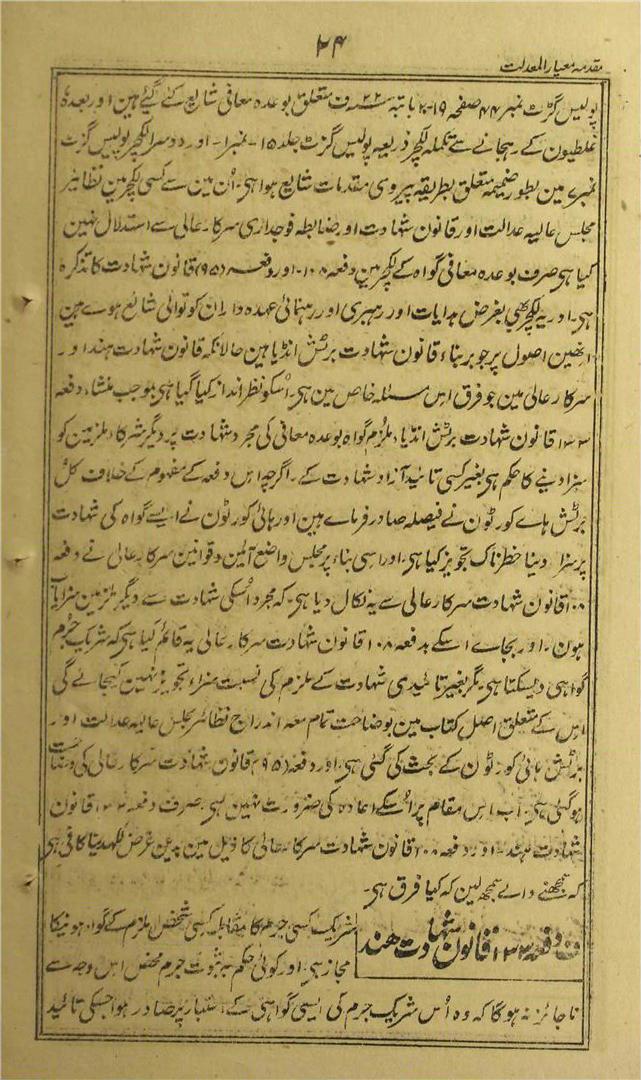 ۲۴
مقدمہ معیار المعدلت
پولیس گزٹ نمبر ۴۴ صفحہ ۱۹-۲۰ بابتہ ۲۲ ف متعلق بوعدہ معافی شایع کئے گئے ہین اور بعدہٗ
غلطیون کے رہجانے سے تکملہ لکچر ذریعہ پولیس گزٹ جلد ۱۵-نمبر ۱-اور دوسرا لکچر پولیس گزٹ
نمبر ۷ مین بطور ضمیمہ متعلق بطریقہ پیروی مقدمات شایع ہوا ہی۔ اُن مین سے کسی لکچر مین نظائر
مجلس عالیہ عدالت اور قانون شہادت اور ضابطہ فوجداری سرکارعالی سے استدلال نہین
کیا ہی صرف بوعدہ معافی گواہ کے لکچر مین دفعہ ۱۰۸۔اور دفعہ (۹۵) قانون شہادت کا تذکرہ
ہی۔ اور یہ لکچر بھی بغرض ہدایات اور رہبری اور رہنمائی عہدہ داران کوتوالی شائع ہوے ہین
انھین اصول پر جو بر بناء قانون شہادت برٹش انڈیا ہین حالانکہ قانون شہادت ہند اور
سرکارعالی مین جو فرق اس مسئلہ خاص مین ہی۔ اُسکو نظر انداز کیا گیا ہی بموجب منشاء دفعہ
۱۳۳ قانون شہادت برٹش انڈیا، ملزم گواہ بوعدہ معافی کی مجرد شہادت پر دیگر شرکاء ملزمین کو
سزا دینے کا حکم ہی بغیر کسی تائید آزاد شہادت کے۔ اگرچہ اس دفعہ کے مفہوم کے خلاف کل
برٹش ہاے کورٹون نے فیصلہ صادر فرماے ہین اور ہائی کورٹون نے ایسے گواہ کی شہادت
پر سزا دینا خطرناک تجویز کیا ہی۔ اور اسی بناء پر مجلس واضع آئین و قوانین سرکارعالی نے دفعہ
۱۰۸ قانون شہادت سرکارعالی سے یہ نکال دیا ہی۔ کہ مجرد اُسکی شہادت سے دیگر ملزمین سزایاب
ہون۔ اور بجاے اسکے بدفعہ ۱۰۸ قانون شہادت سرکارعالی یہ قائم کیا ہی کہ شریک جُرم
گواہی دیسکتا ہی۔ مگر بغیر تائیدی شہادت کے ملزم کی نسبت سزاء تجویز نہین کیجائے گی
اس کے متعلق اصل کتاب مین بوضاحت تمام معہ اندراج نظائر مجلس عالیہ عدالت اور
برٹش ہائی کورٹون کے بحث کی گئی ہی۔ اور دفعہ (۹۵) قانون شہادت سرکارعالی کی وضاحت
ہوگئی ہی۔ اب اس مقام پر اُسکے اعادہ کی ضرورت نہین ہی۔ صرف دفعہ ۱۳۳ قانون
شہادت ہند۔ اور دفعہ ۱۰۸ قانون شہادت سرکارعالی کا ذیل مین بدین غرض لکھدینا کافی ہی
کہ سمجھنے والے سمجھ لین کہ کیا فرق ہی۔
دفعہ ۱۳۳ قانون شہادت ھند
شریک کسی جرم کا مقابلہ کسی شخص ملزم کے گواہ ہونیکا
مجاز ہی۔ اور کوئی حکم ثبوت جرم محض اس وجہ سے
ناجائز نہ ہوگا کہ وہ اُس شریک جرم کی ایسی گواہی کے اعتبار پر صادر ہوا جسکی تائید